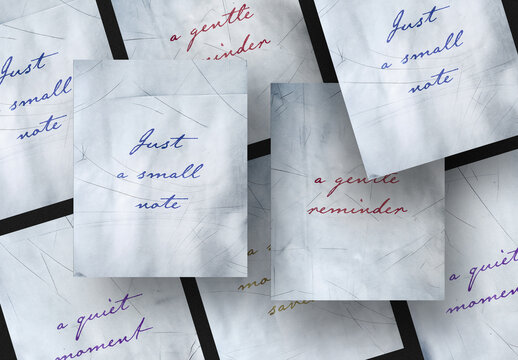 Just
a small
note
a gentle
reminder
Just
a small
note
Just
a small
note
a gentle
reminder
a quiet
moment
a quiet
moment